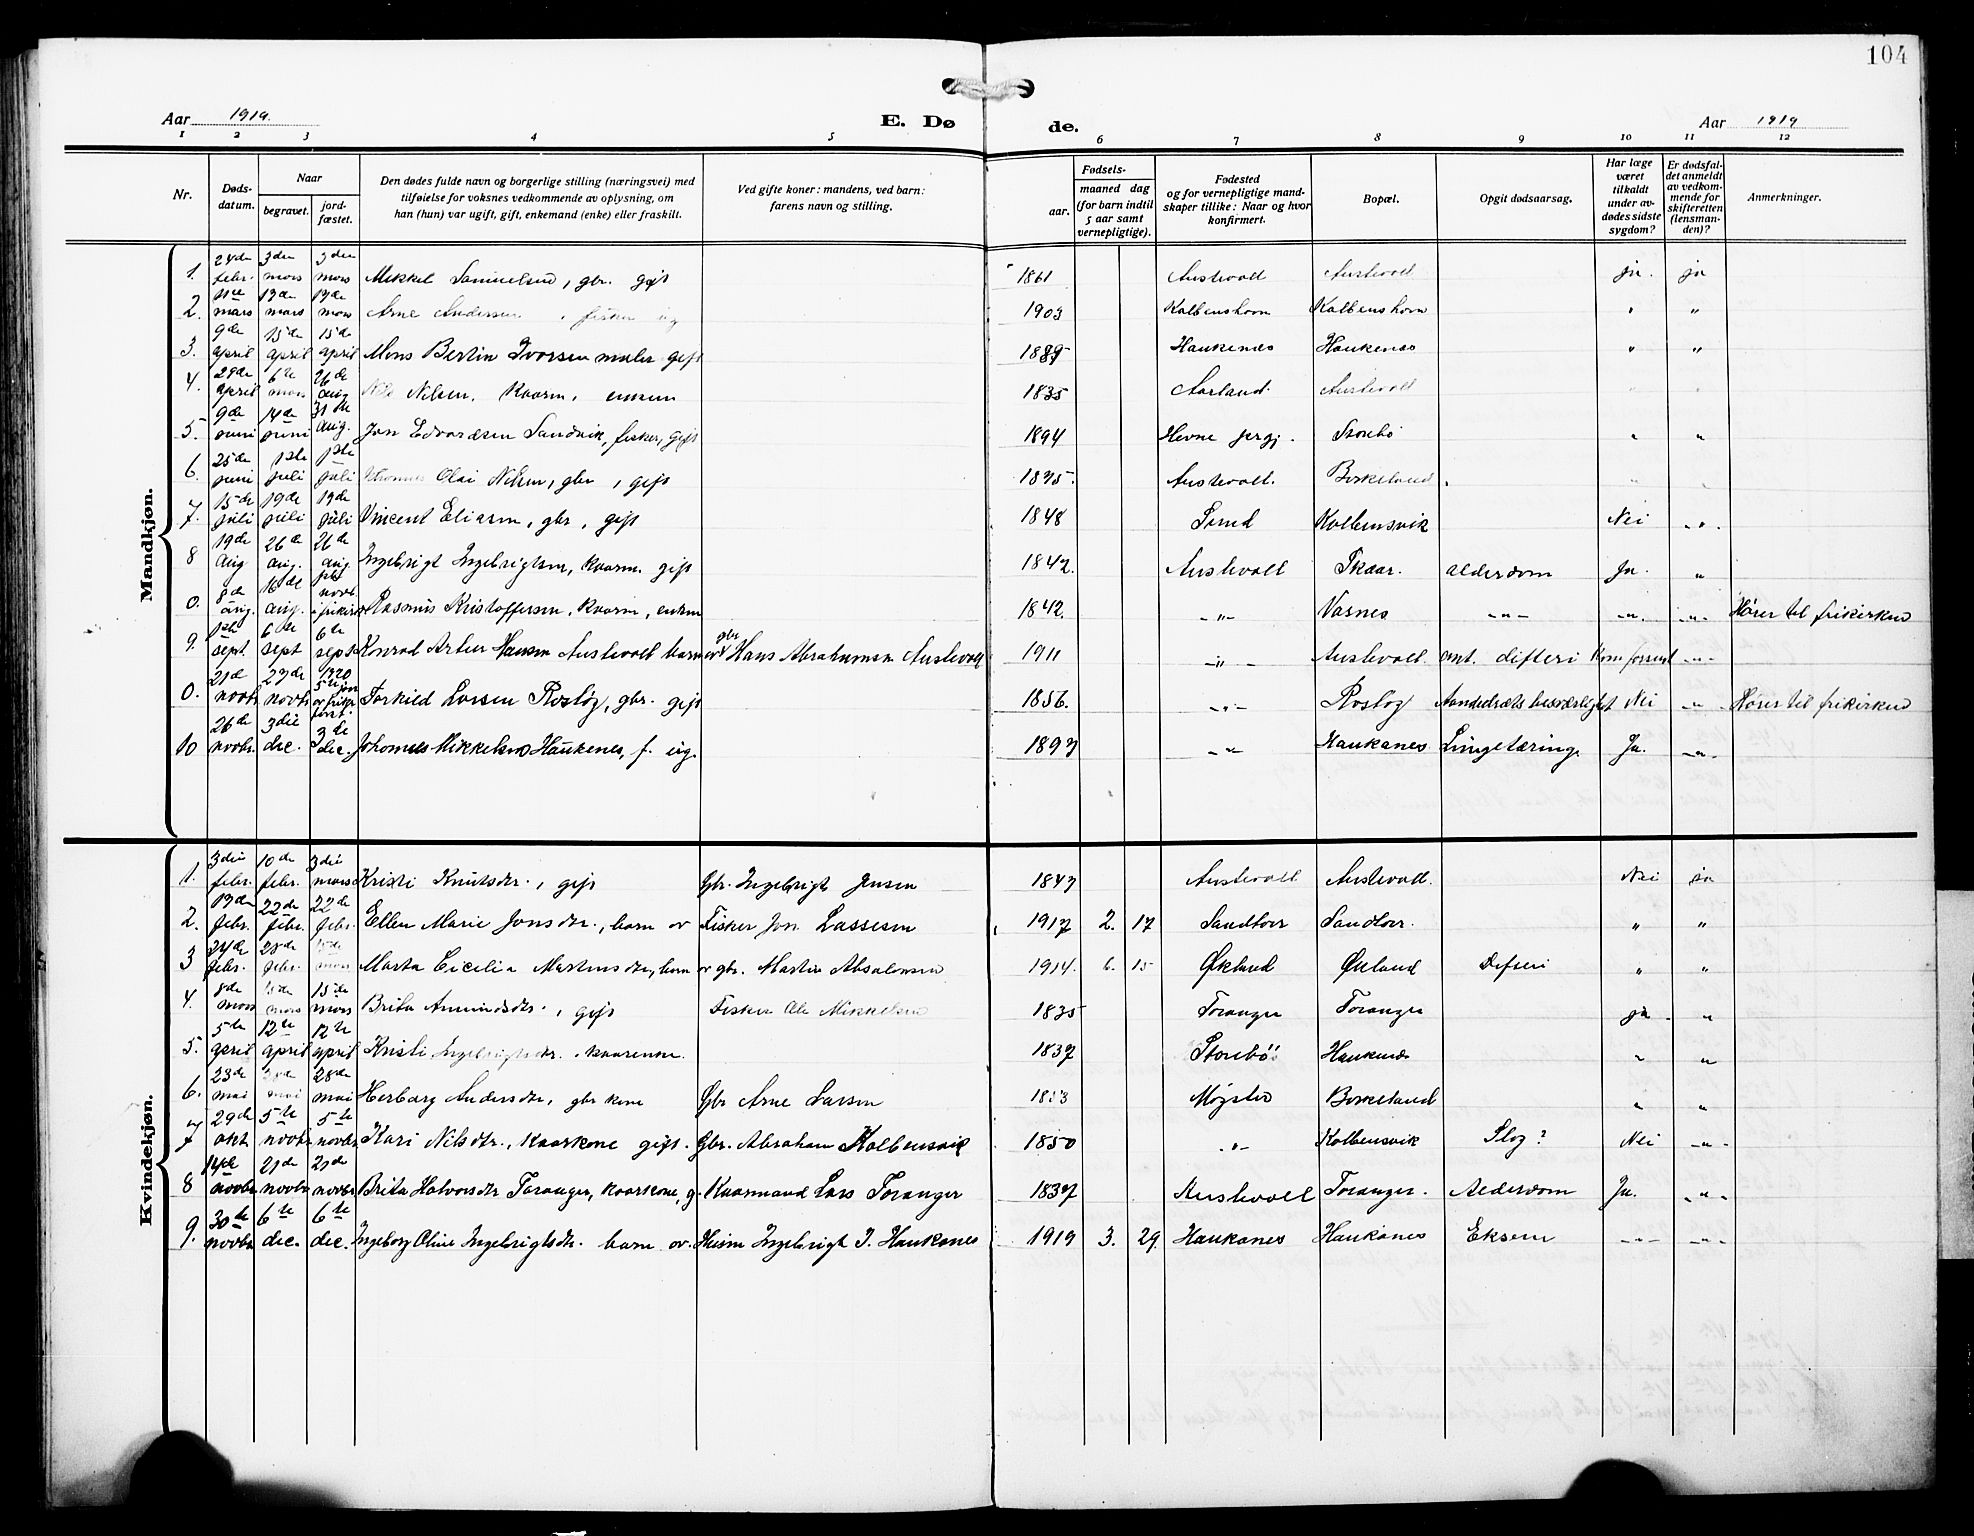 104
Aar 1919. E. Døde. Aar 1919
1 2 3 4 5 6 7 8 9 10 11 12
Nr. Dødsdatum. Naar begravet. jordfæstet. Den dødes fulde navn og borgerlige stilling (næringsvei) med tilføielse for voksnes vedkommende av oplysning, om han (hun) var ugift, gift, enkemand (enke) eller fraskilt. Ved gifte koner: mandens, ved barn: farens navn og stilling. Fødsels- aar. maaned dag (for barn indtil 5 aar samt vernepligtige). Fødested og for vernepligtige mandskaper tillike: Naar og hvor konfirmert. Bopæl. Opgit dødsaarsag. Har læge været tilkaldt under avdødes sidste sygdom? Er dødsfaldet anmeldt av vedkommende for skifteretten (lensmanden)? Anmerkninger.
Mandkjøn.
1. 24de febr. 3die mars 3die mars Mikkel Samuelsen, gbr. gift 1861 Austevoll Austevoll ja. ja
2. 11te mars 19de mars 19de mars Arne Andersen, fisker ug 1903 Kolbenshavn Kolbenshavn " "
3. 9de april 15de april 15de april Mons Bertin Ivarsen maler gift Haukenæs Haukenæs " "
4. 29de april 6te mai 26de aug Nils Nilsen, Kaarm, enkem 1835 Aarland Austevoll
5. 9de juni 14de juni 31te aug. Jon Edvardsen Sandvik, fisker, gift 1894 Hevne prgj. Storebø " "
6. 25de juni 1ste juli 1ste juli Olai Nilsen, gbr, gift Austevoll. Birkeland.
7. 15de juli 19de juli 19de juli Vincent Eliasen, gbr, gift 1848 Sund Kolbensvik Nei - " -
8 19de aug 26de aug. 26de aug Ingebrigt Ingebrigtsen, Kaarm. gift 1842. Austevoll Skaar. Alderdom Ja. "
0. 8de aug. aug. novb. i frikirke Rasmus Kristoffersen, Kaarm, enkem 1842. - " - Vasnes - " - - " - - " - Hører til frikirken
9. 1ste sept. 6te sept 6te sept Konrad Artur Hansen Austevoll barn av gbr Hans Abrahamsen Austevoll 1911 - " - Austevoll ant. difteri Kom forsent - " -
0. 21de novbr 29de novbr 1920 5te jan Torkild Larsen Rostøy, gbr. gift 1856. - " - Rostøy Aandedræts besværlighet Nei - " - Hører til frikirken
10 26de novbr. 3die dec. 3de dec. Johannes Mikkelsen Haukenes, f. ug. 1897 - " - Haukanes Lungetæring. Ja. - " -
Kvindekjøn.
1. 3die febr. 10de febr. 3die mars Kristi Knutsdtr., gift Gbr. Ingebrigt Jensen 1847 Austevoll Austevoll. Nei ja
2. 19de febr. 22de febr. 22de febr. Ellen Marie Jonsdtr., barn av Fisker Jon Lassesen 1917 2. 17 Sandtorv Sandtorv. " "
3 24de febr. 28de febr. mars Marta Cicilia Martinsdtr, barn av gbr. Martin Absalonsen 1914. 6. 15 Økland Økland Difteri " "
4. 8de mars 15de mars 15de mars Brita Amundsdtr., gift Fisker Ole Mikkelsen 1835 Toranger Toranger ja. "
5. 5te april 12te april 12te april Kristi Ingebrigtsdtr. kaarenke. 1837 Storebø Haukenæs " "
6. 23de mai 28de mai 28de mai Herborg Andersdtr, gbr kone Gbr Arne Larsen Møgster Birkeland " "
7 29de okt. 5te novbr 5te novbr. Kari Nilsdtr., Kaarkone gift. Gbr. Abraham Kolbensvik 1850 - " - Kolbensvik Slag? Nei - " -
8 14de novbr. 21de novbr 21de novbr. Brita Halvorsdtr Toranger, Kaarkone, g. Kaarmand Lars Toranger 1837 Austevoll Toranger. Alderdom Ja. - " -
9. 30te novbr 6te dec. 6te dec. Ingeborg Oline Ingebrigtsdtr. barn av. Husm Ingebrigt J. Haukanes 1919 3. 29. Haukanes Haukanes Eksem - " - - " -